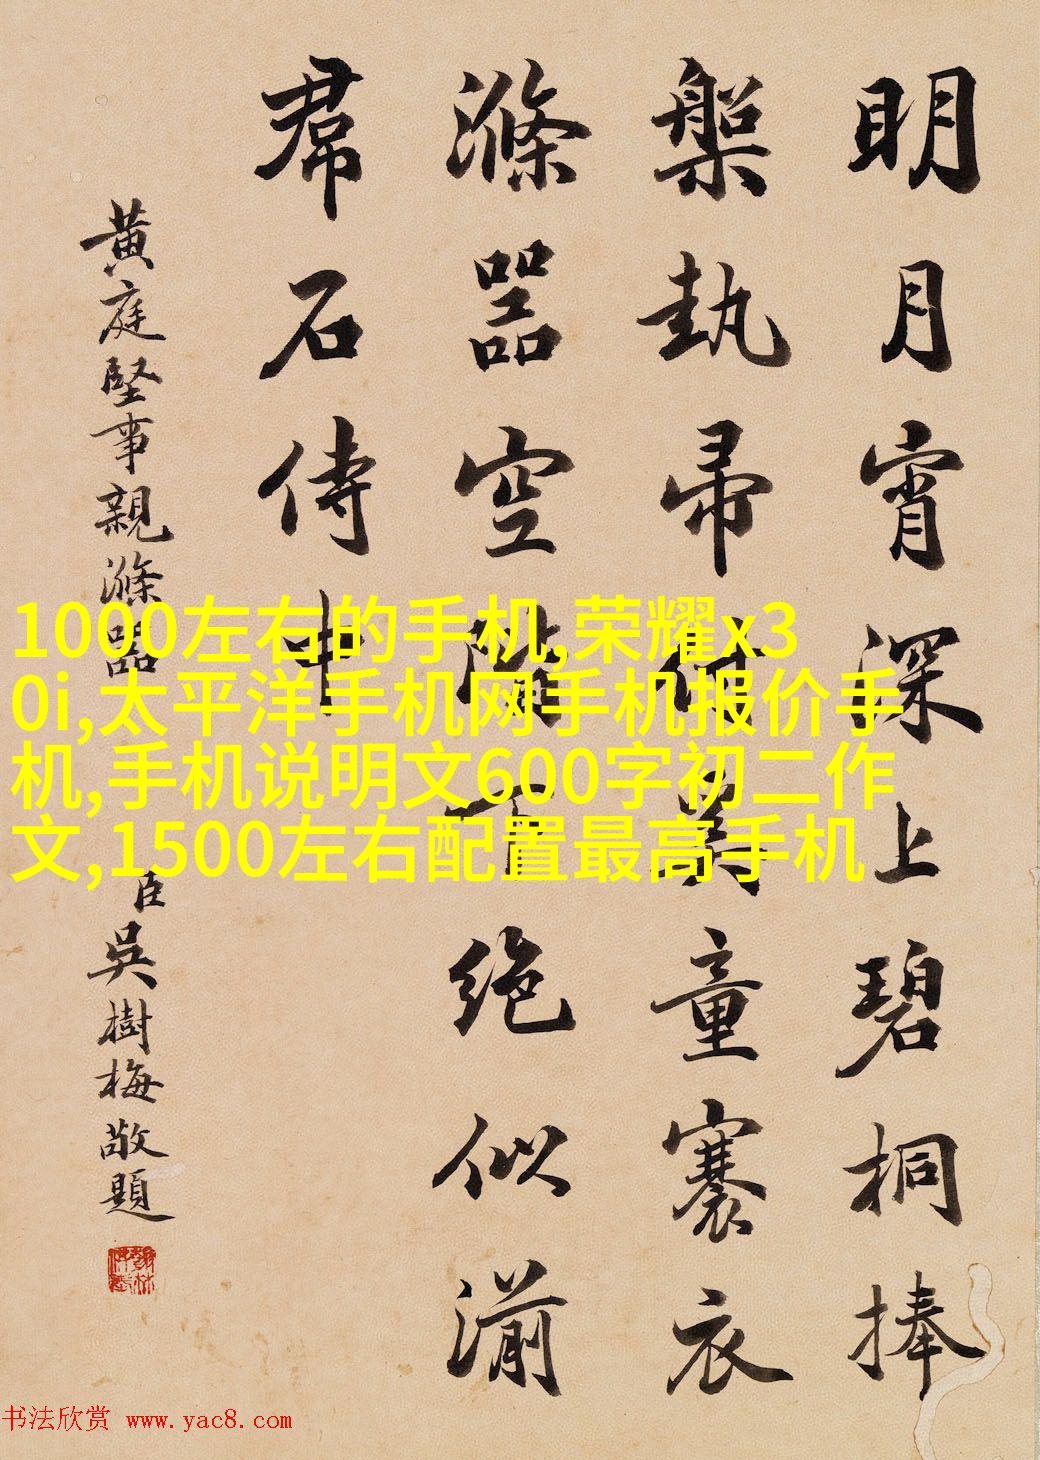 明月宵深上碧桐捧
槃執帚付奚童褰衣
滌器空階下絕似湔
帬石侍中
黄庭堅事親滌器
臣吳樹梅敬題
1000左右的手机,荣耀x3
0i,太平洋手机网手机报价手
机,手机说明文600字初二作
文,1500左右配置最高手机
书法欣赏 www.yac8.com